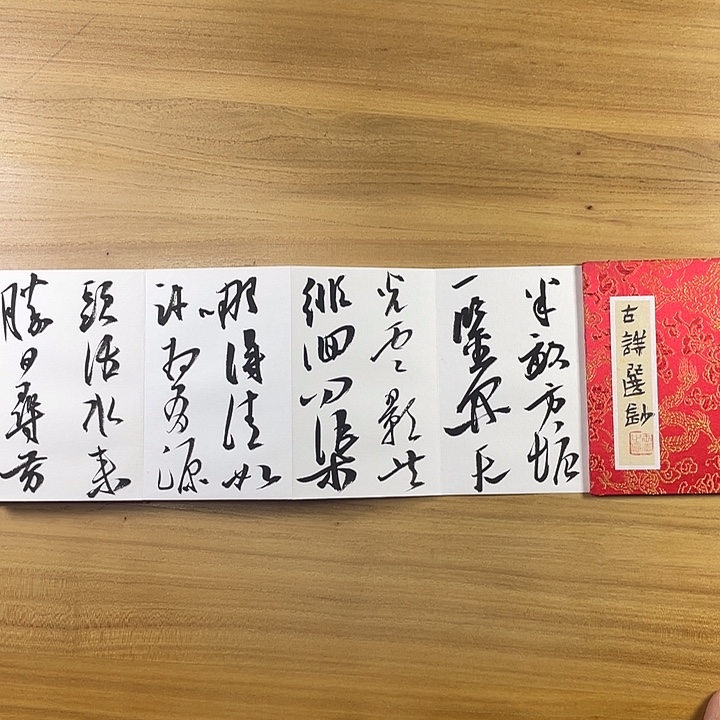 古詩選鈔
半畝方塘
一鑒開天
光雲影共
徘徊問渠
那得清如
許為有源
頭活水來
勝日尋芳